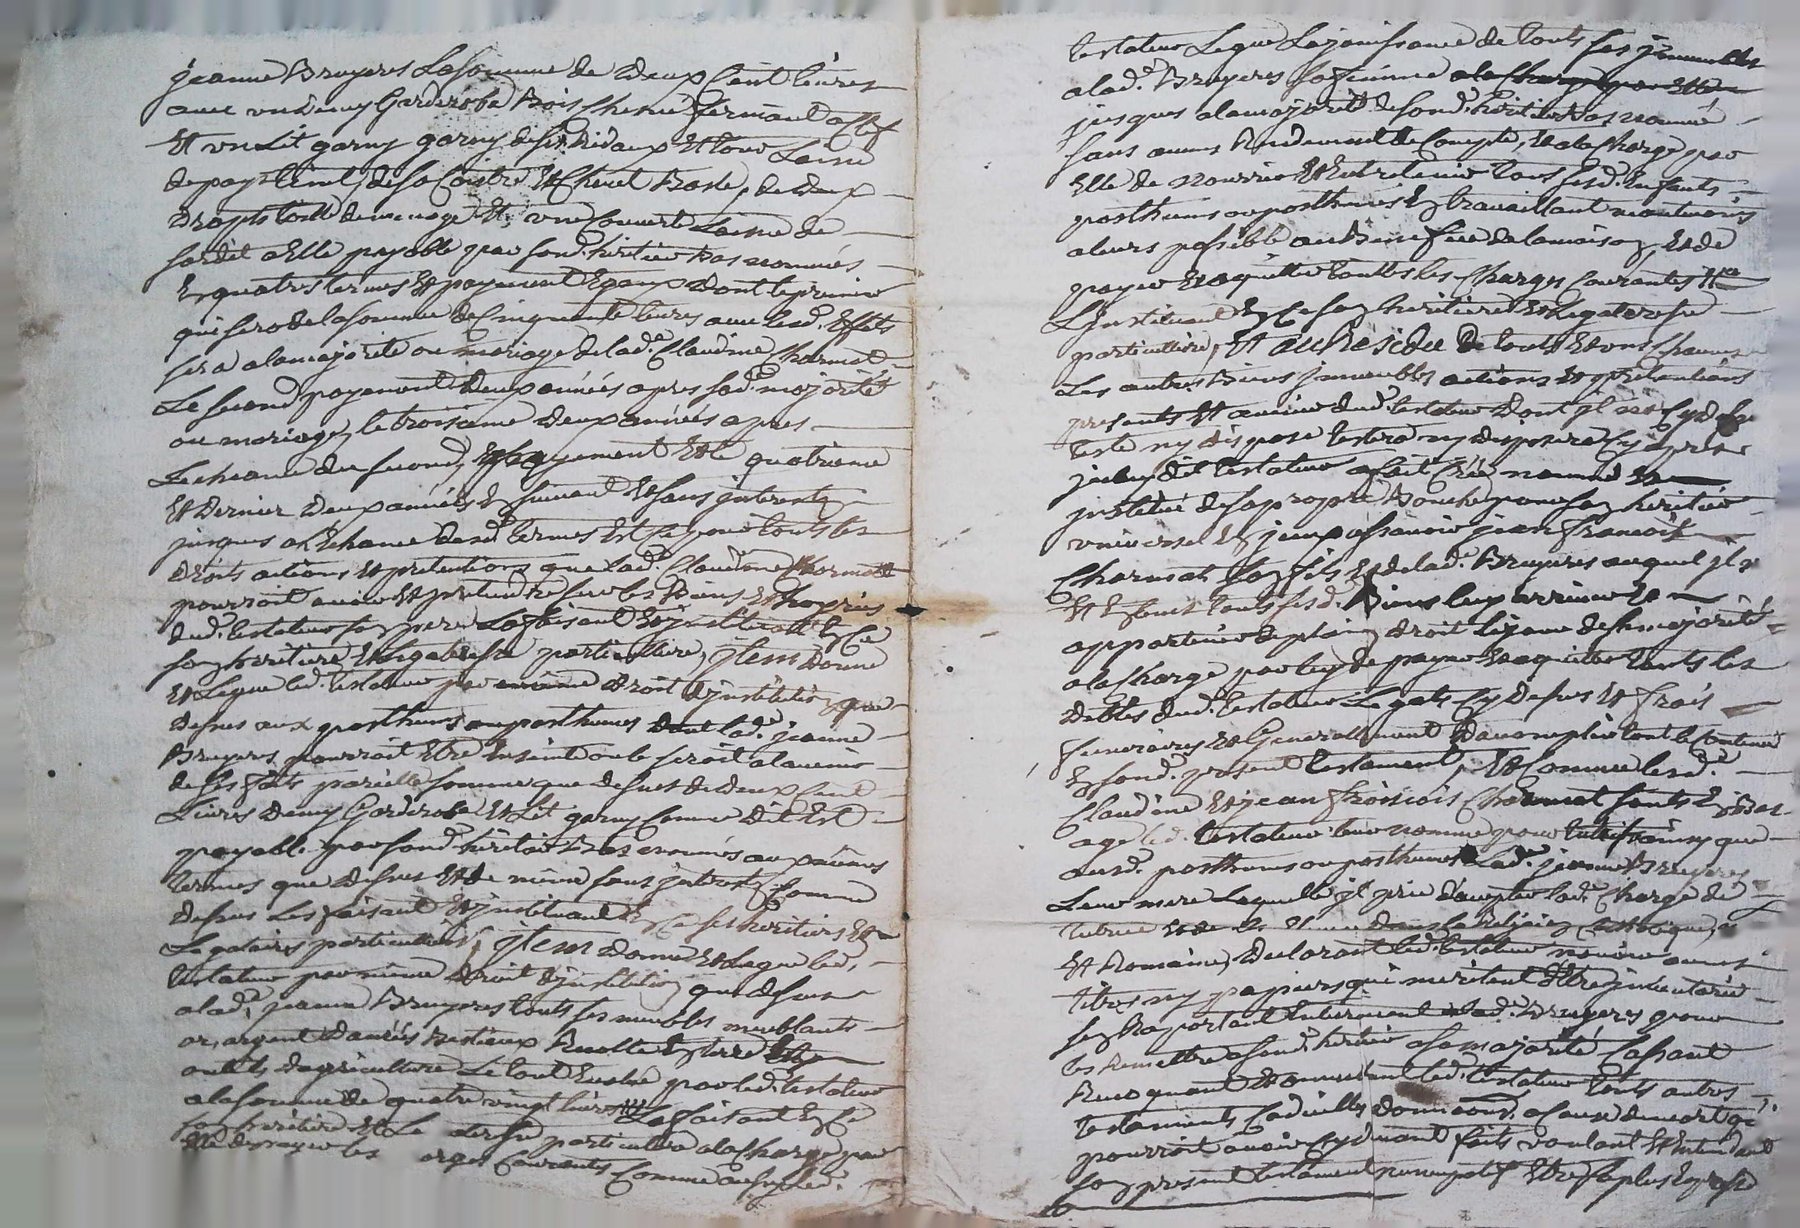 jeanne Bruyeres La somme de deux cent livres
avec un demy Garderobe Bois chene fermant a clef
Et un Lit garny garny de ses Ridaux Et tour Laine
de pays teint, de sa Coitre Et Chevet Basle, de deux
draps toille de menage Et une Couverte Laine de
payable par sond. heritier Bas nommés
En quatre termes Et payement Egaux dont le premier
qui sera de la somme de Cinquante livres avec lesd. Effets
sera a la majorité ou mariage de lad.e Claudine Charmat
Le second payement deux années apres sad.e majorité
ou mariage, le troisieme deux années apres
Lecheance du second, Et le quatrieme
Et dernier deux années En suivant Et sans interest
jusques a Lechance desd. termes Et ce pour touts les
droits actions Et pretentions que Lad.e Claudine Charmat
pourroit avoir Et pretendre sur les Biens Et hoyries
dud. testateur son pere La faisant Et instituant En ce
son heritiere Et Legateresse particulliere, jtem donne
Et Legue led. testateur par meme droit d'institution que
dessus aux posthumes ou posthumes dont lad.e jeanne
Bruyeres pourroit Etre Enceinte ou le seroit a lavenir
de ses faits pareille somme que dessus de deux cent
Livres demy Garderobe Et Lit garny Comme dit Est
payable par sond. heritier Bas nommés aux mêmes
termes que dessus Et de même sans interest Comme
dessus Les faisant Et instituant En ce ses heritiers Et
Legataires particulliers, jtem donne Et Legue led.
testateur par même droit d'institution que dessus
a lad.e jeanne Bruyeres touts ses meubles meublants
or, argent danrées Bestiaux Recolte En terre
outils dagriculture Le tout Evalué par led. testateur
a la somme de quatre vingt livres La faisant En ce
son heritiere Et Le particulliere a la Charge par
Elle de payer les Courantes Comme
testateur Legue La jouissance de touts ses jmmeubles
a lad.e Bruyeres sa femme
jusques a la majorité de sond. heritier Bas nommé
sans aucun Rendement de Compte, Et a la Charge par
Elle de Nourrir Et Entretenir tous sesd. Enfants
posthumes ou posthumes En travaillant
a leurs possible au Benefice de la maison, Et de
payer Et aquitter touttes les Charges Courantes
L'jnstituant En ce son heritiere Et Legateresse
particulliere, Et au Residu de touts Et uns Chacuns
Les autres Biens jmmeubles actions Et pretentions
presents Et avenir dud. testateur dont jl n'a Cy dessus
testé ny disposé testera ny disposera Cy apres
jceluy dit testateur a fait Créé nommé Et
jnstitué de sa propre Bouche pour son heritier
universel En jceux a scavoir jean françois
Charmat son fils Et de lad.e Bruyeres auquel jl
Et Enfant touts sesd. Biens luy arriver Et
appartenir de plain droit Lejour de sa majorité
a la Charge par luy de payer Et aquitter touts les
debtes dud. testateur Legats Cy dessus Et frais
funeraires Et Generallement daccomplir tout le Contenu
En sond. present testament, Et Comme lesd.
Claudine Et jean françois Charmat sonts En Bas
age led. testateur leur nomme pour tutrice que
auxd. posthumes ou posthumes Lad.e jeanne Bruyeres
Leur mere Laquelle jl prie daccepter lad.e Charge de
tutrice Et de les dans la Religion Catholique,
Et Romaine, declarant led. testateur n'avoir aucun
titres ny papiers qui meritent d'Etre inventoriés
sen Raportant Entierement a lad.e Bruyeres pour
les Remettre a sond. heritier a sa majorité Cassant
Revoquant Et annullant led. testateur touts autres
testaments Codicilles donnaons a cause de mort qu'jl
pourroit avoir Cy devant faits voulant Et Entendant
son present testament nuncupatif Etre sa plus Expresse